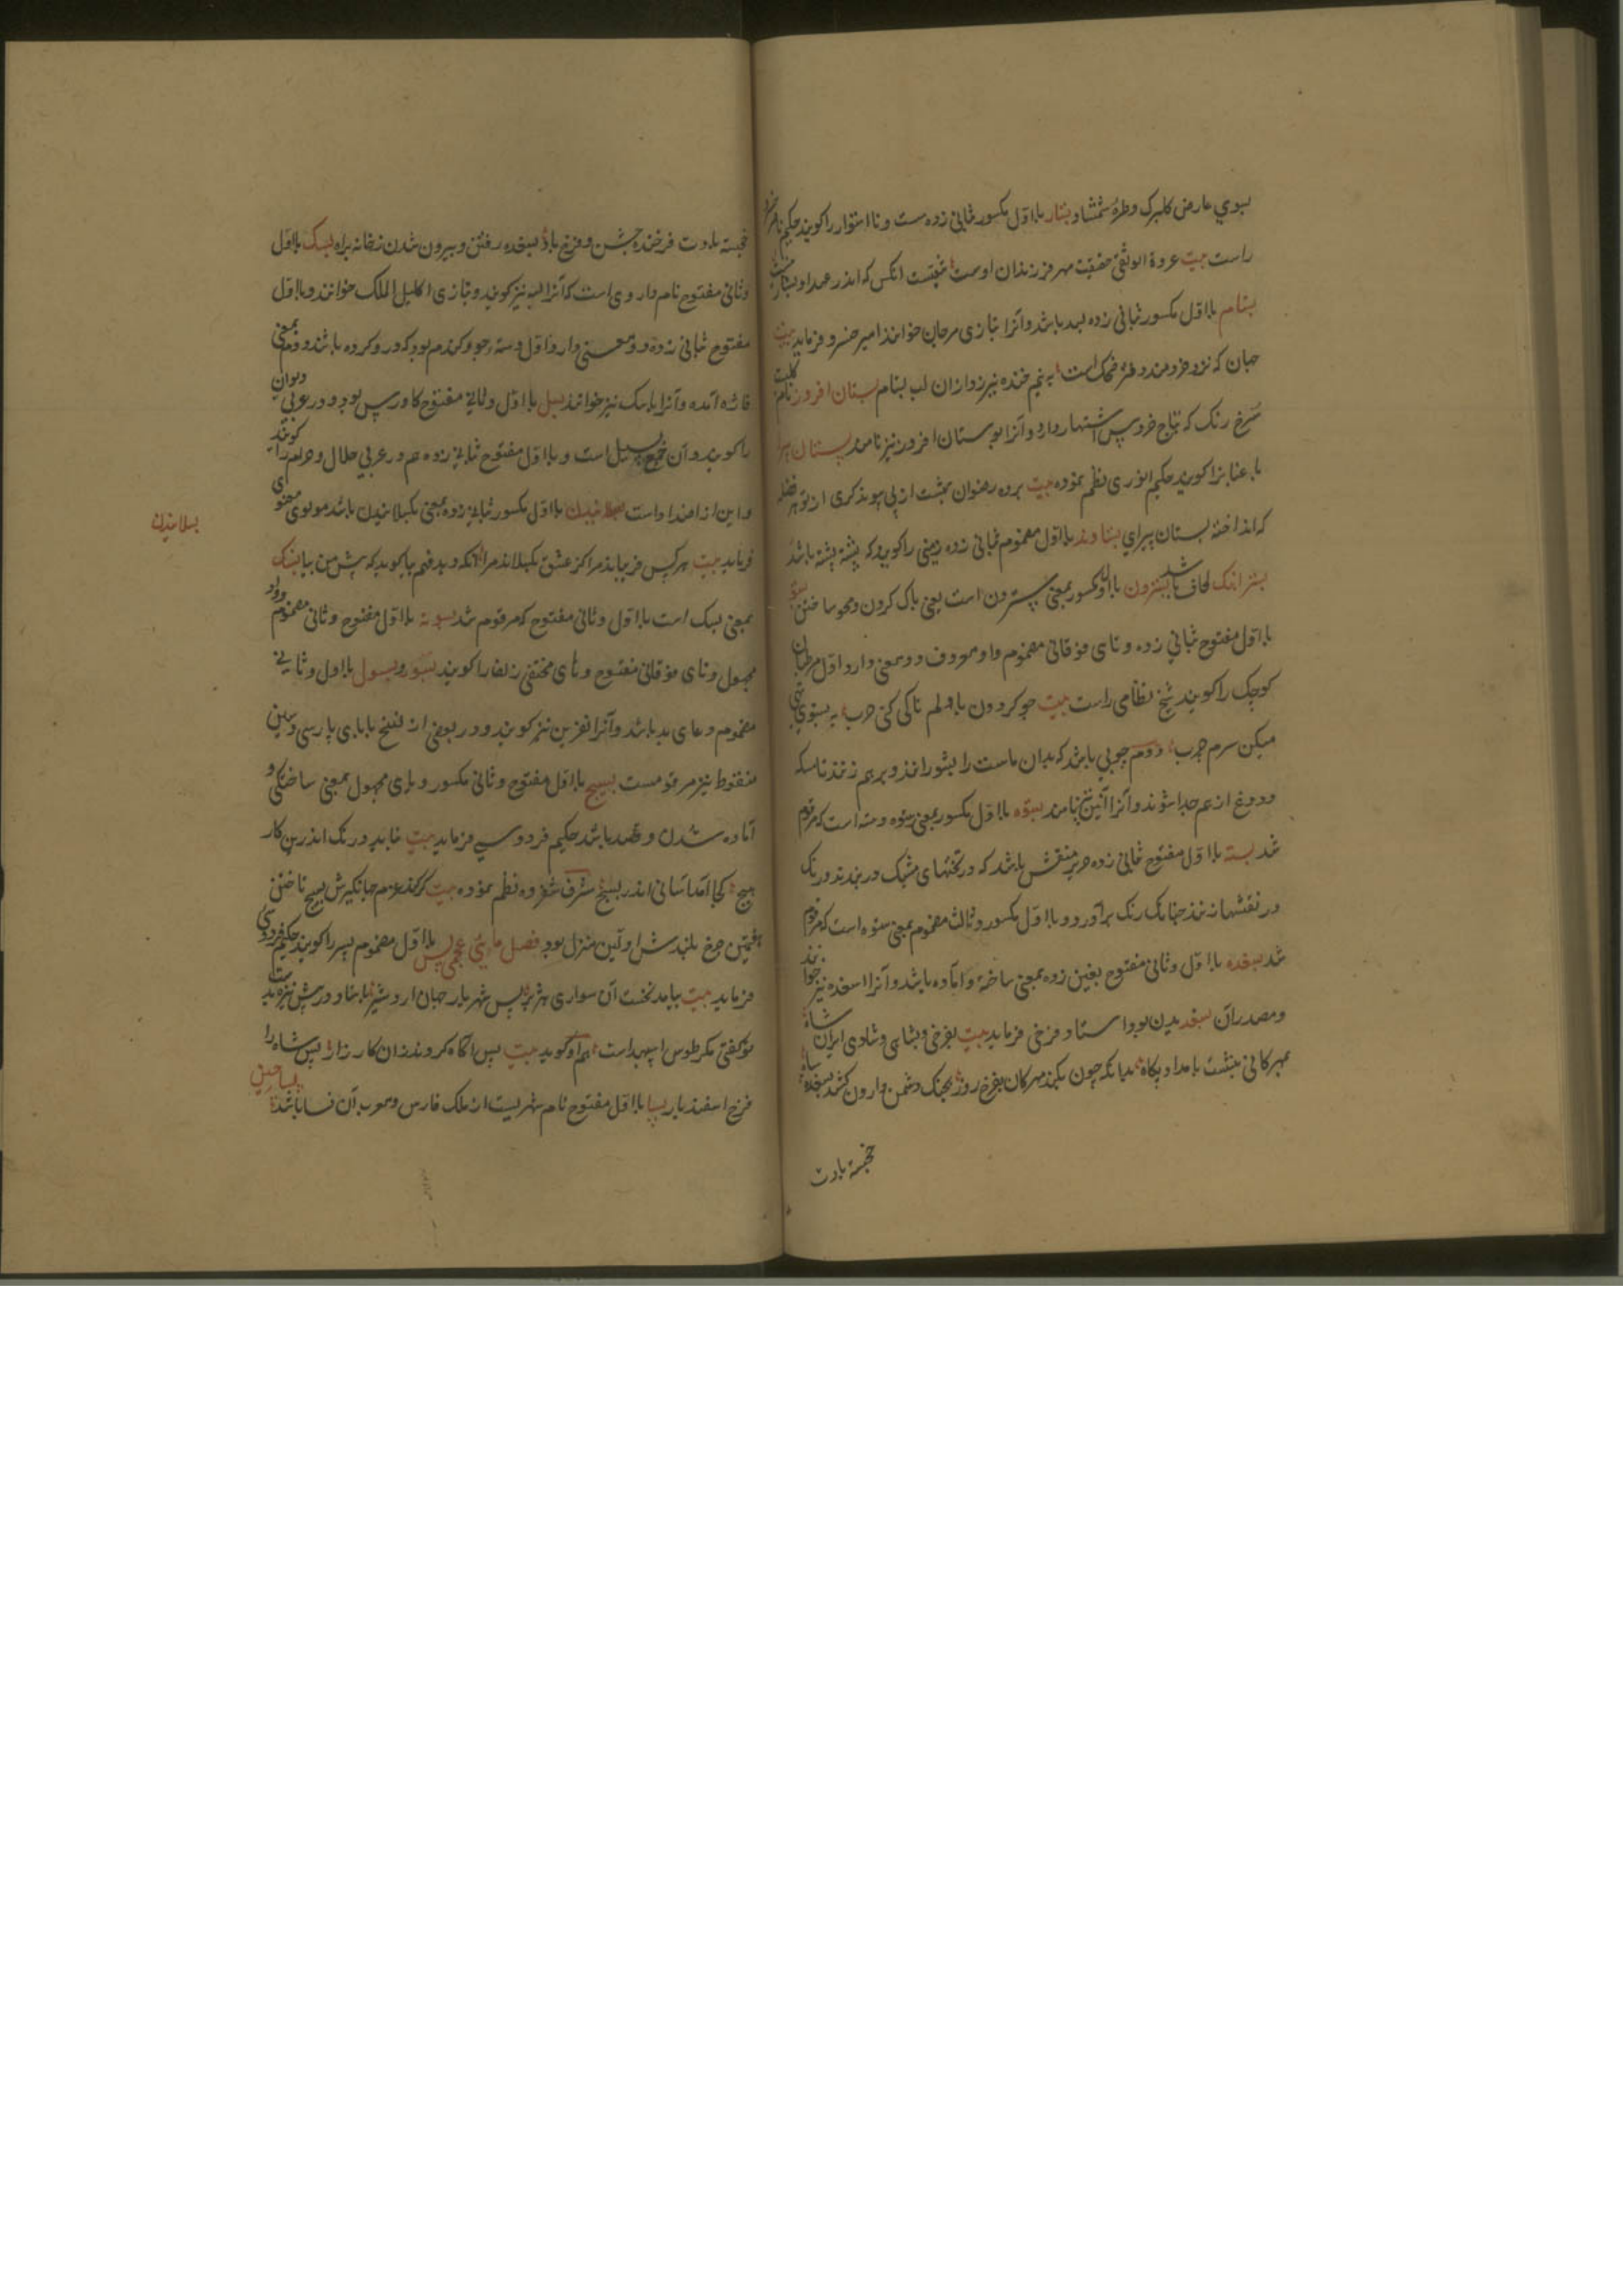 ببوی عارض کلبرک وطرهٔ شمشاد بستار بااول مکسور بثانی زده سست ونااستوار راکویند حکیم ناصر خسرو
راست بیت عروة الوثقی حقیقت مهر فرزندان اوست شیفتست انکس که اندر عهد او بستار
بستام بااول مکسور بثانی زده بسد باشد وآنرا بتازی مرجان خوانند امیر خسرو فرماید بیت
جهان که نزد خردمند در فکست به نیم خنده نیرزد ازان لب بستام بستان افروز نام کلیست
سرخ رنک که بتاج خروس اشتهار دارد وآنرا بوستان افروز نیز نامند بستان پیرا
باغبانرا کویند حکیم انوری نظم نموده بیت برده رضوان ببهشت از پی پیوند کری از تو هر فضله
که انداخته بستان پیرای بستاوند بااول مضموم بثانی زده زمینی راکویند که پشته پشته باشد
بستر اهنک لحاف باشد بستردن بااول مکسور بمعنی ستردن است یعنی پاک کردن ومحو ساختن بستو
بااول مفتوح بثانی زده وتای فوقانی مضموم واو معروف دو معنی دارد اول مرطبان
کوچک راکویند شیخ نظامی راست بیت چو کردون بادلم تاکی کنی حرب به بستوی تهی
میکن سرم چرب دوم چوبی باشد که بدان ماست را بشورانند وبرهم زنند تا مسکه
ودوغ از هم جدا شوند وآنرا آئین نیز نامند بستوه بااول مکسور بمعنی ستوه است که مرقوم
شد بسته بااول مفتوح بثانی زده حریر منقش باشد که در تختهای مشبک در بندند ورنک
در نقشها زنند چنانک رنک برآورد وبااول مکسور وثالث مضموم بمعنی ستوه است که مرقوم
شد بسغده بااول وثانی مفتوح بغین زده بمعنی ساخته وآماده باشد وآنرا اسغده نیز خوانند
ومصدر آن بسغدیدن بود استاد فرخی فرماید بیت بفرخی وبشادی وشاهی ایران شاه
بمهرکانی بنشست بامداد پکاه بدانکه چون بکند مهرکان بفرخ روز بجنک دشمن وارون کشد بسغده سپاه
خجسته بادت
خجسته بادت فرخنده جشن وفرخ باد بسغده رفتن وبیرون شدن زخانه براه بسک بااول
وثانی مفتوح نام داروی است که آنرا بسه نیز کویند وبتازی اکلیل الملک خوانند وبااول
مفتوح بثانی زده دو معنی دارد اول دسته جو وکندم بود که درو کرده باشند دوم بمعنی
فاژه آمده وآنرا باسک نیز خوانند بسل بااول وثانی مفتوح کاورس بود ودر عربی دلیران
راکویند وآن جمع باسل است وبااول مفتوح بثانی زده هم در عربی حلال وحرام را کویند
واین از اضداد است بسلانیدن بااول مکسور بثانی زده بمعنی بکسلانیدن باشد مولوی معنوی
فرماید بیت هرکس فریباند مرا کز عشق بکسلاند مرا انکه دید فهم پا کوید که پیش من بیا بسنک
بمعنی بسک است بااول وثانی مفتوح که مرقوم شد بسوته بااول مفتوح وثانی مضموم وواو
مجهول وتای فوقانی مفتوح وهای مختفی زلف را کویند بسور وبسول بااول وثانی
مضموم دعای بد باشد وآنرا نفرین نیز کویند ودر بعضی از نسخ بابای پارسی وشین
منقوط نیز مرقومست بسیج بااول مفتوح وثانی مکسور ویای مجهول بمعنی ساختکی و
آماده شدن وقصد باشد حکیم فردوسی فرماید بیت نباید درنک اندرین کار
هیچ کجا آمد آسانی اندر بسیج شرف شفروه نظم نموده بیت کر کند عزم جهانکیرش بسیج تاختن
هفتمین چرخ بلندش اولین منزل بود فصل بای عجمی پس بااول مضموم پسر راکویند حکیم فردوسی
فرماید بیت بیامد نخست آن سوار هژبر پس شهریار جهان اردشیر باستاد در پیش نیزه بدست
توکفتی مکر طوس اسپهبد است هم او کوید بیت پس آکاه کردند زان کارزار پس شاه را
فرخ اسفندیار پسا بااول مفتوح نام شهریست از ملک فارس ومعرب آن فسا باشد پساچین
بسلانیدن